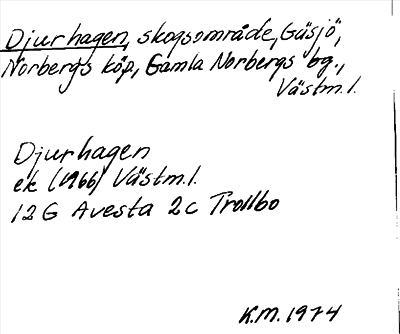 Djurhagen, skogsområde, Gäsjö,
Norbergs köp, Gamla Norbergs bg.,
Västm.l.
Djurhagen
ek (1966) Västm.l.
12G Avesta 2c Trollbo
K.M. 1974